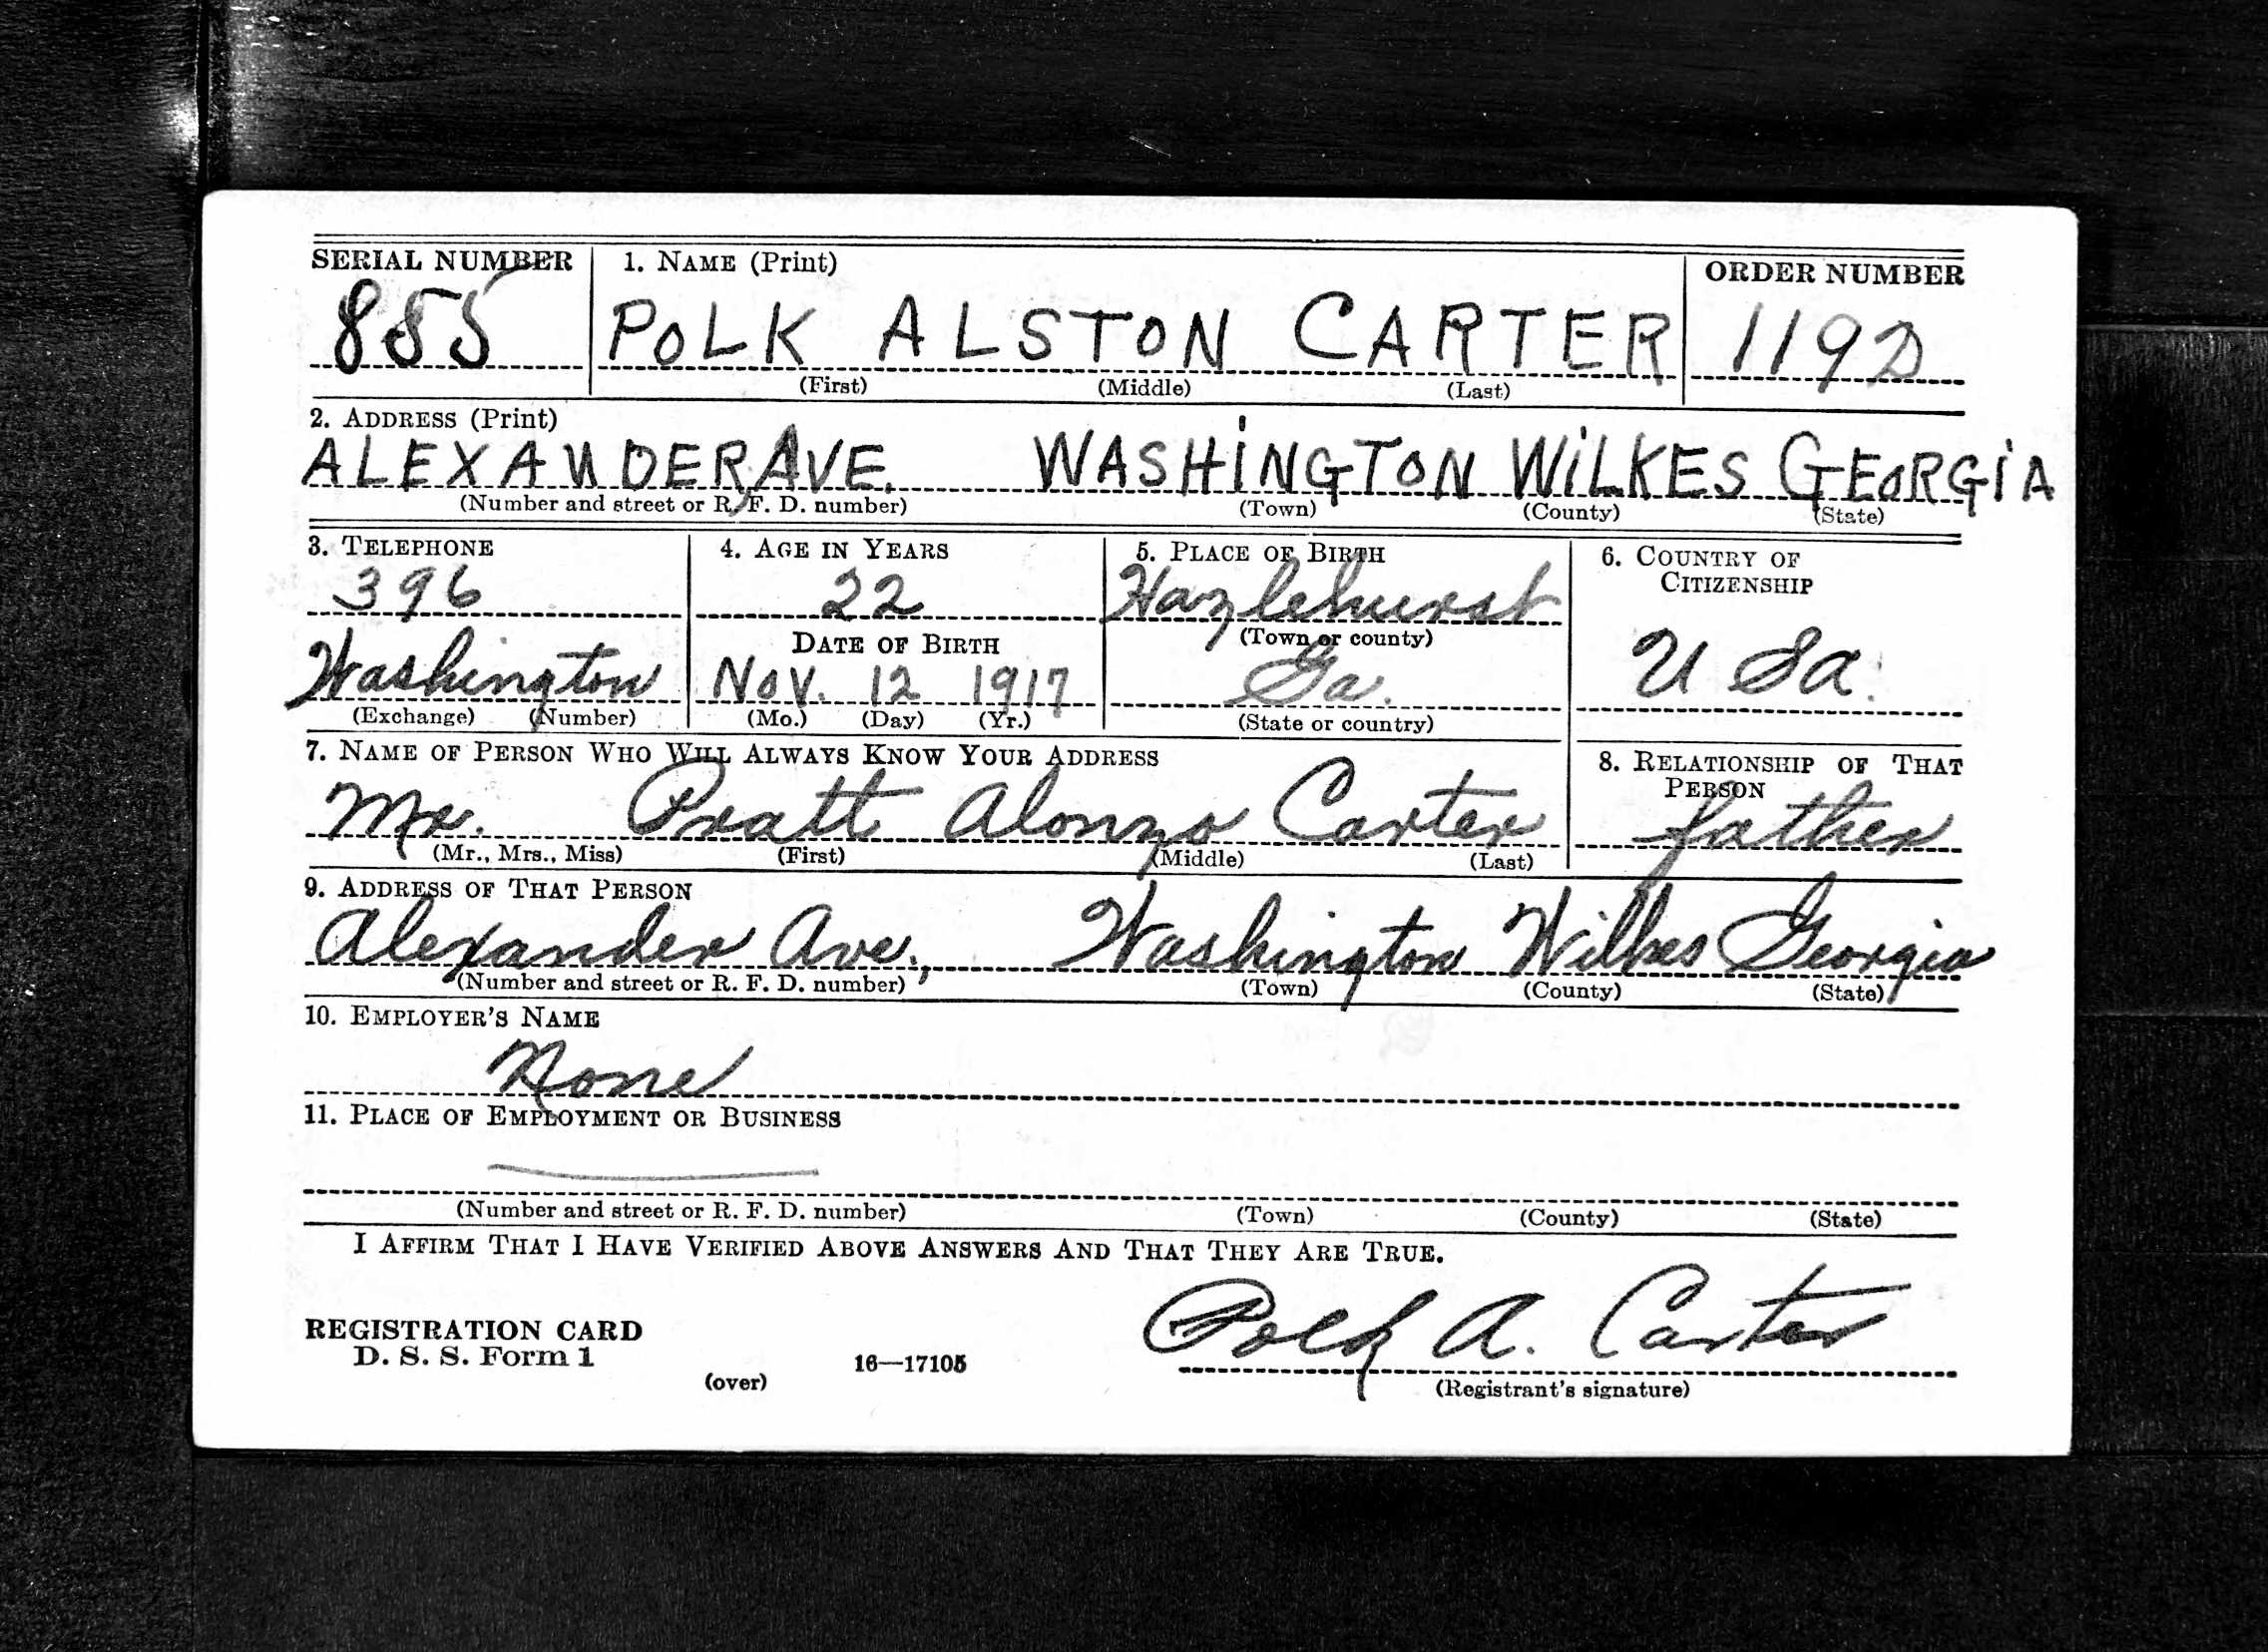 SERIAL NUMBER 1. NAME (Print) ORDER NUMBER
855 POLK ALSTON CARTER 1192
(First) (Middle) (Last)
2. ADDRESS (Print)
ALEXANDER AVE. WASHINGTON WILKES GEORGIA
(Number and street or R. F. D. number) (Town) (County) (State)
3. TELEPHONE 4. AGE IN YEARS 5. PLACE OF BIRTH 6. COUNTRY OF CITIZENSHIP
396 22 Hazlehurst
DATE OF BIRTH (Town or county)
Washington Nov. 12 1917 Ga. U Sa.
(Exchange) (Number) (Mo.) (Day) (Yr.) (State or country)
7. NAME OF PERSON WHO WILL ALWAYS KNOW YOUR ADDRESS 8. RELATIONSHIP OF THAT PERSON
Mr. Pratt Alonzo Carter father
(Mr., Mrs., Miss) (First) (Middle) (Last)
9. ADDRESS OF THAT PERSON
Alexander Ave., Washington Wilkes Georgia
(Number and street or R. F. D. number) (Town) (County) (State)
10. EMPLOYER'S NAME
None
11. PLACE OF EMPLOYMENT OR BUSINESS
(Number and street or R. F. D. number) (Town) (County) (State)
I AFFIRM THAT I HAVE VERIFIED ABOVE ANSWERS AND THAT THEY ARE TRUE.
Polk A. Carter
REGISTRATION CARD
D. S. S. Form 1
(over) 16—17105 (Registrant's signature)